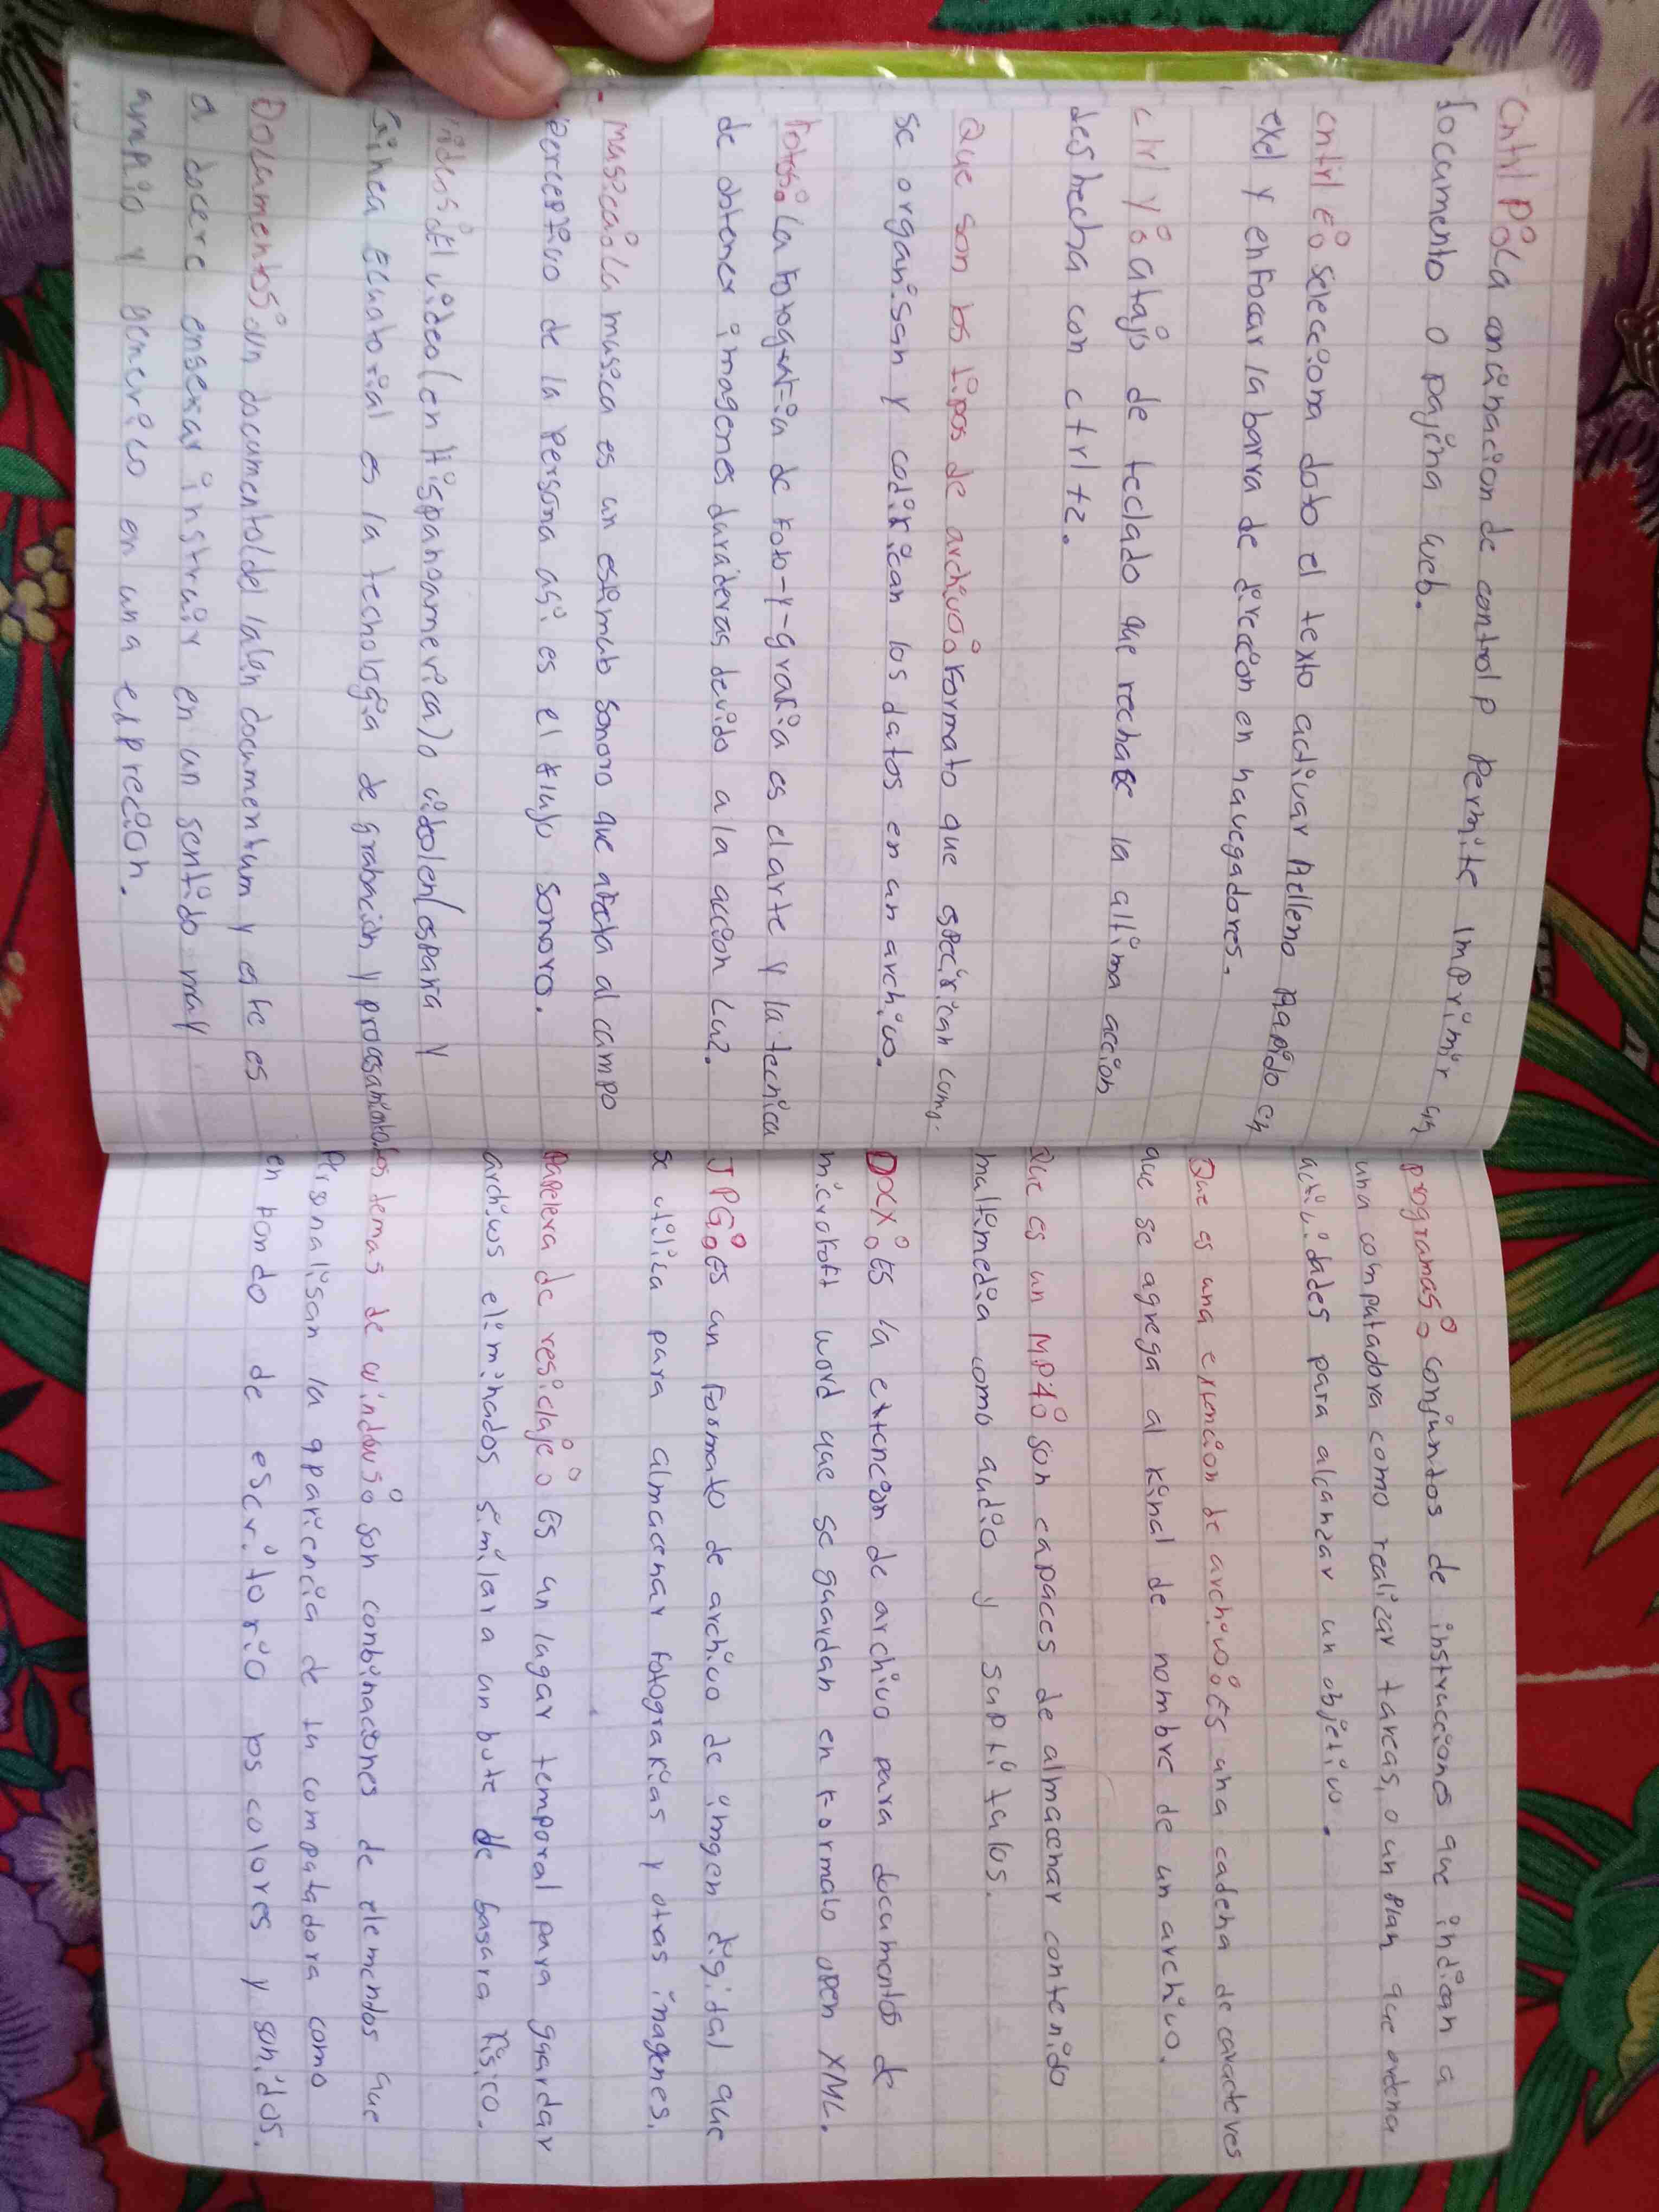 Cntrl P: La convinacion de control p permite imprimir un
documento o pajina web.
cntrl E: selecciona doto el texto activar Relleno Rapido en
exel y enfocar la barra de direccion en navegadores.
ctrl y: atajo de teclado que rechase la ultima acción
deshecha con ctrl+z.
Que son los tipos de archivo: Formato que especifican como
se organisan y codifican los datos en un archivo.
Fotos: La fotografia de foto-y-grafia es el arte y la tecnica
de ontener imagenes duraderas devido a la accion Luz.
- musica: La musica es un estimulo sonoro que afecta al campo
perceptivo de la persona asi es el flujo sonoro.
videns: El video (en Hispanoamerica) o video (en españa y
Ginea Ecuatorial es la techologia de grabacion y procesamiento
Documentos: un documento del latin documentum y este es
a docere ensenar instruir en un sentido muy
amplio y generico en una eprecion.
programas: conjuntos de instrucciones que indican a
una computadora como realizar tareas, o un plan que ordena
actividades para alcanzar un objetivo.
Que es una extencion de archivo: Es una cadena de caracteres
que se agrega al final de nombre de un archivo.
Que es un MP4: son capaces de almacenar contenido
multimedia como audio y suptitulos.
DOCX: Es la extencion de archivo para documentos de
microfoft word que se guardan en formato open XML.
JPG: Es un formato de archivo de imgen digidal que
se utiliza para almacenar fotografias y otras imagenes.
papelera de resiclaje: Es un lugar temporal para guardar
archivos eliminados similar a un bute de basura fisico.
los temas de windows: son conbinaciones de elemendos que
Personalisan la apariencia de tu computadora como
en fondo de escritorio los colores y sonidos.